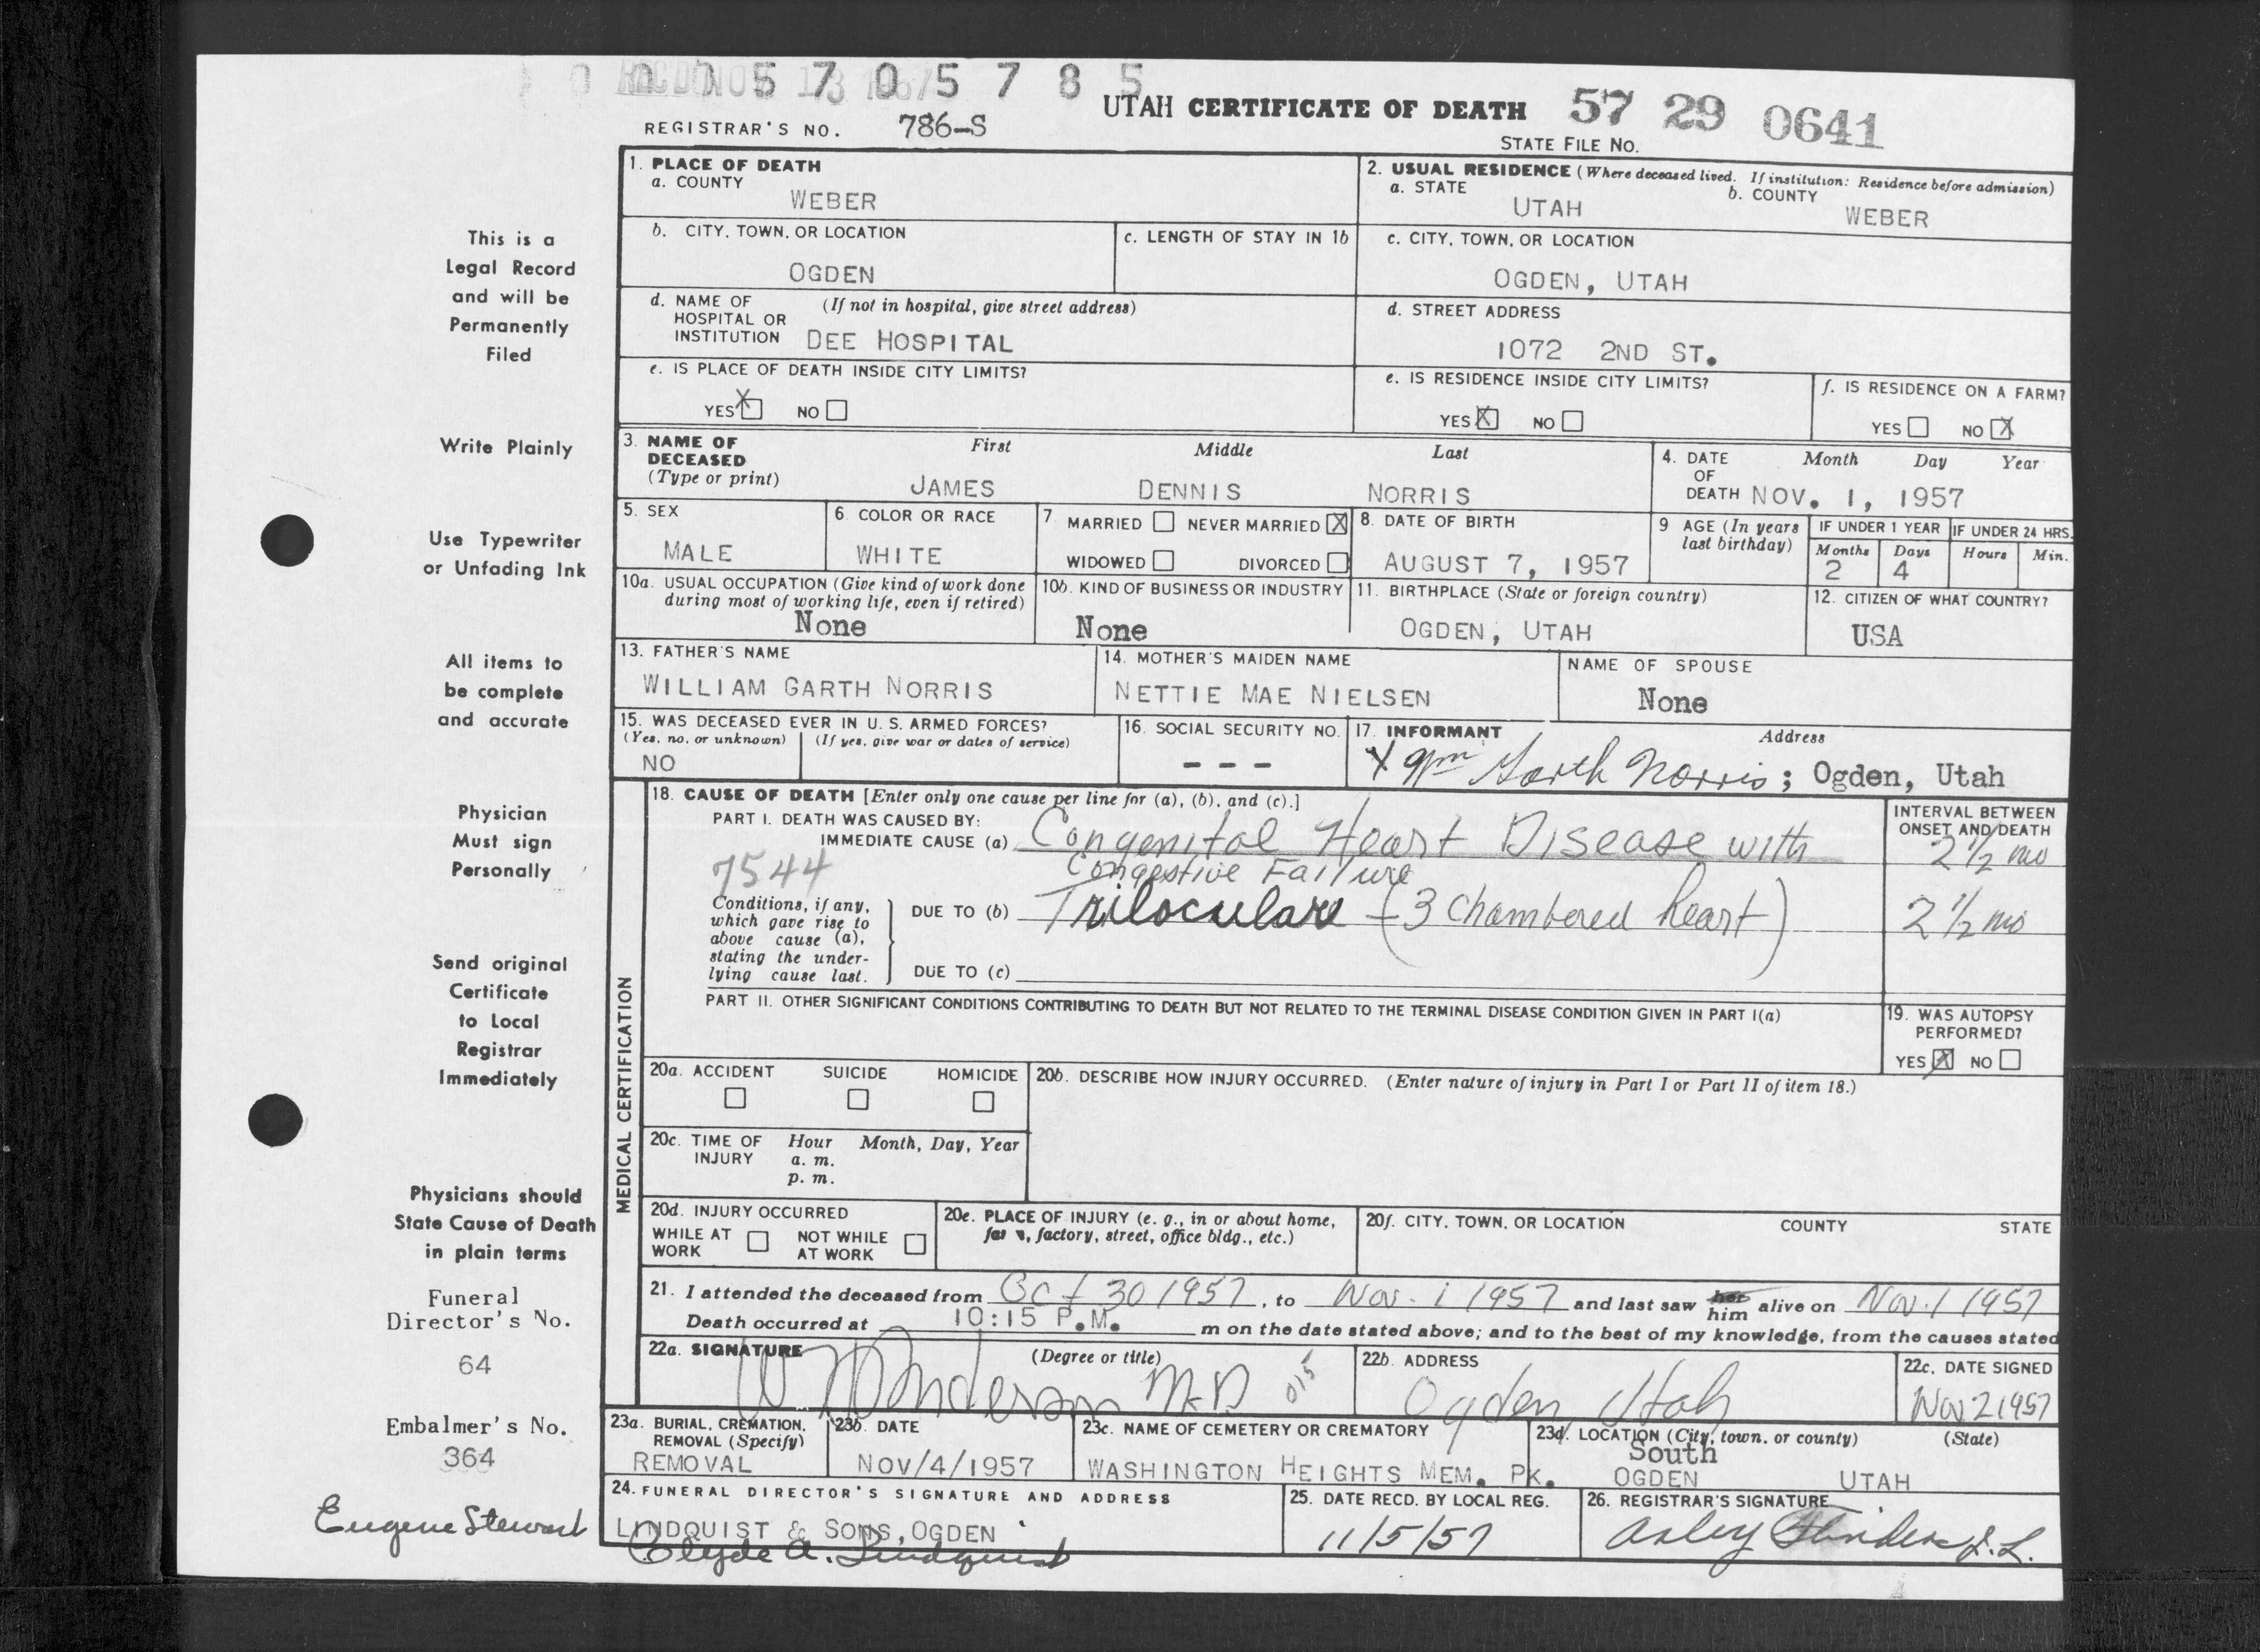 0 1 5 7 0 5 7 8 5
UTAH CERTIFICATE OF DEATH 57 29 0641
REGISTRAR'S NO. 786-S
STATE FILE NO.
This is a
Legal Record
and will be
Permanently
Filed
Write Plainly
Use Typewriter
or Unfading Ink
All items to
be complete
and accurate
Physician
Must sign
Personally
Send original
Certificate
to Local
Registrar
Immediately
Physicians should
State Cause of Death
in plain terms
Funeral
Director's No.
64
Embalmer's No.
364
Eugene Stewart
1. PLACE OF DEATH
a. COUNTY
WEBER
2. USUAL RESIDENCE (Where deceased lived. If institution: Residence before admission)
a. STATE b. COUNTY
UTAH WEBER
b. CITY, TOWN, OR LOCATION
OGDEN
c. LENGTH OF STAY IN 1b
c. CITY, TOWN, OR LOCATION
OGDEN, UTAH
d. NAME OF (If not in hospital, give street address)
HOSPITAL OR
INSTITUTION DEE HOSPITAL
d. STREET ADDRESS
1072 2ND ST.
e. IS PLACE OF DEATH INSIDE CITY LIMITS?
YES X NO
e. IS RESIDENCE INSIDE CITY LIMITS?
YES X NO
f. IS RESIDENCE ON A FARM?
YES NO X
3. NAME OF First Middle Last
DECEASED
(Type or print)
JAMES DENNIS NORRIS
4. DATE Month Day Year
OF
DEATH NOV. 1, 1957
5. SEX
MALE
6. COLOR OR RACE
WHITE
7. MARRIED NEVER MARRIED X
WIDOWED DIVORCED
8. DATE OF BIRTH
AUGUST 7, 1957
9 AGE (In years
last birthday)
IF UNDER 1 YEAR IF UNDER 24 HRS.
Months Days Hours Min.
2 4
10a. USUAL OCCUPATION (Give kind of work done
during most of working life, even if retired)
None
10b. KIND OF BUSINESS OR INDUSTRY
None
11. BIRTHPLACE (State or foreign country)
OGDEN, UTAH
12. CITIZEN OF WHAT COUNTRY?
USA
13. FATHER'S NAME
WILLIAM GARTH NORRIS
14. MOTHER'S MAIDEN NAME
NETTIE MAE NIELSEN
NAME OF SPOUSE
None
15. WAS DECEASED EVER IN U. S. ARMED FORCES?
(Yes, no, or unknown) (If yes, give war or dates of service)
NO
16. SOCIAL SECURITY NO.
- - -
17. INFORMANT Address
X Wm Garth Norris; Ogden, Utah
MEDICAL CERTIFICATION
18. CAUSE OF DEATH [Enter only one cause per line for (a), (b), and (c).]
PART I. DEATH WAS CAUSED BY:
IMMEDIATE CAUSE (a) Congenital Heart Disease with
Congestive Failure
7544
INTERVAL BETWEEN
ONSET AND DEATH
2 1/2 mo
Conditions, if any,
which gave rise to
above cause (a),
stating the under-
lying cause last.
DUE TO (b) Triloculare (3 chambered heart)
2 1/2 mo
DUE TO (c)
PART II. OTHER SIGNIFICANT CONDITIONS CONTRIBUTING TO DEATH BUT NOT RELATED TO THE TERMINAL DISEASE CONDITION GIVEN IN PART I(a)
19. WAS AUTOPSY
PERFORMED?
YES X NO
20a. ACCIDENT SUICIDE HOMICIDE
20b. DESCRIBE HOW INJURY OCCURRED. (Enter nature of injury in Part I or Part II of item 18.)
20c. TIME OF Hour Month, Day, Year
INJURY a. m.
p. m.
20d. INJURY OCCURRED
WHILE AT NOT WHILE
WORK AT WORK
20e. PLACE OF INJURY (e. g., in or about home,
farm, factory, street, office bldg., etc.)
20f. CITY, TOWN, OR LOCATION COUNTY STATE
21. I attended the deceased from Oct 30 1957, to Nov. 1 1957 and last saw her him alive on Nov. 1 1957
Death occurred at 10:15 P.M. m on the date stated above; and to the best of my knowledge, from the causes stated
22a. SIGNATURE (Degree or title)
Anderson M.D
22b. ADDRESS
Ogden Utah
22c. DATE SIGNED
Nov 2 1957
23a. BURIAL, CREMATION,
REMOVAL (Specify)
REMOVAL
23b. DATE
NOV/4/1957
23c. NAME OF CEMETERY OR CREMATORY
WASHINGTON HEIGHTS MEM. PK.
23d. LOCATION (City, town, or county) (State)
South
OGDEN UTAH
24. FUNERAL DIRECTOR'S SIGNATURE AND ADDRESS
LINDQUIST & SONS, OGDEN
Clyde A. Lindquist
25. DATE RECD. BY LOCAL REG.
11/5/57
26. REGISTRAR'S SIGNATURE